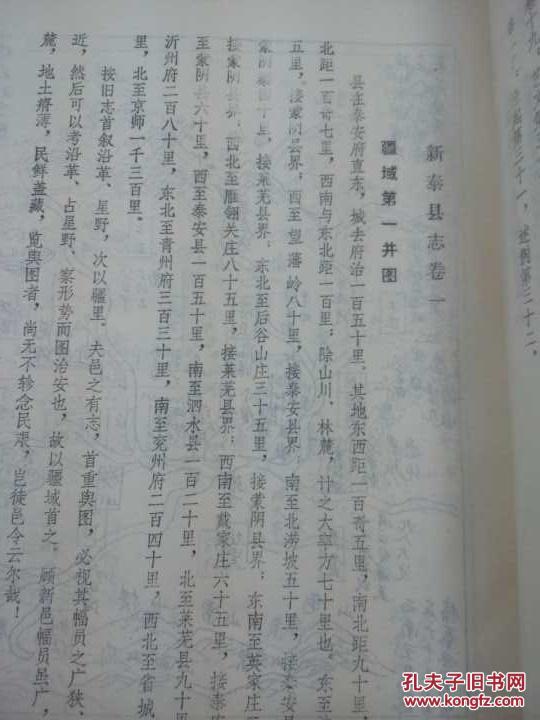 第三十一，述图第三十二，
新泰县志卷一
疆域第一并图
县在泰安府直东，城去府治一百五十里。其地东西距一百奇五里，南北距九十里
北距一百奇七里，西南与东北距一百里；除山川、林麓，计之大率方七十里也。东至
五里，接蒙阴县界；西至望蕃岭八十里，接泰安县界；南至北涝坡五十里，接泰
十里，接莱芜县界；东北至后谷山庄三十五里，接蒙阴县界；东南至英家庄
接蒙阴县界；西北至雁翎关庄八十五里，接莱芜县界；西南至戴家庄六十五里，接
至蒙阴县六十里，西至泰安县一百五十里，南至泗水县一百二十里，北至莱芜县九十
沂州府二百八十里，东北至青州府三百三十里，南至兖州府二百四十里，西北至省城
里，北至京师一千三百里。
按旧志首叙沿革、星野，次以疆里。夫邑之有志，首重舆图，必视其幅员之广狭、
近，然后可以考沿革、占星野、察形势而图治安也，故以疆域首之。顾新邑幅员虽广，
麓，地土瘠薄，民鲜盖藏，览舆图者，尚无不轸念民艰，岂徒邑令云尔哉！